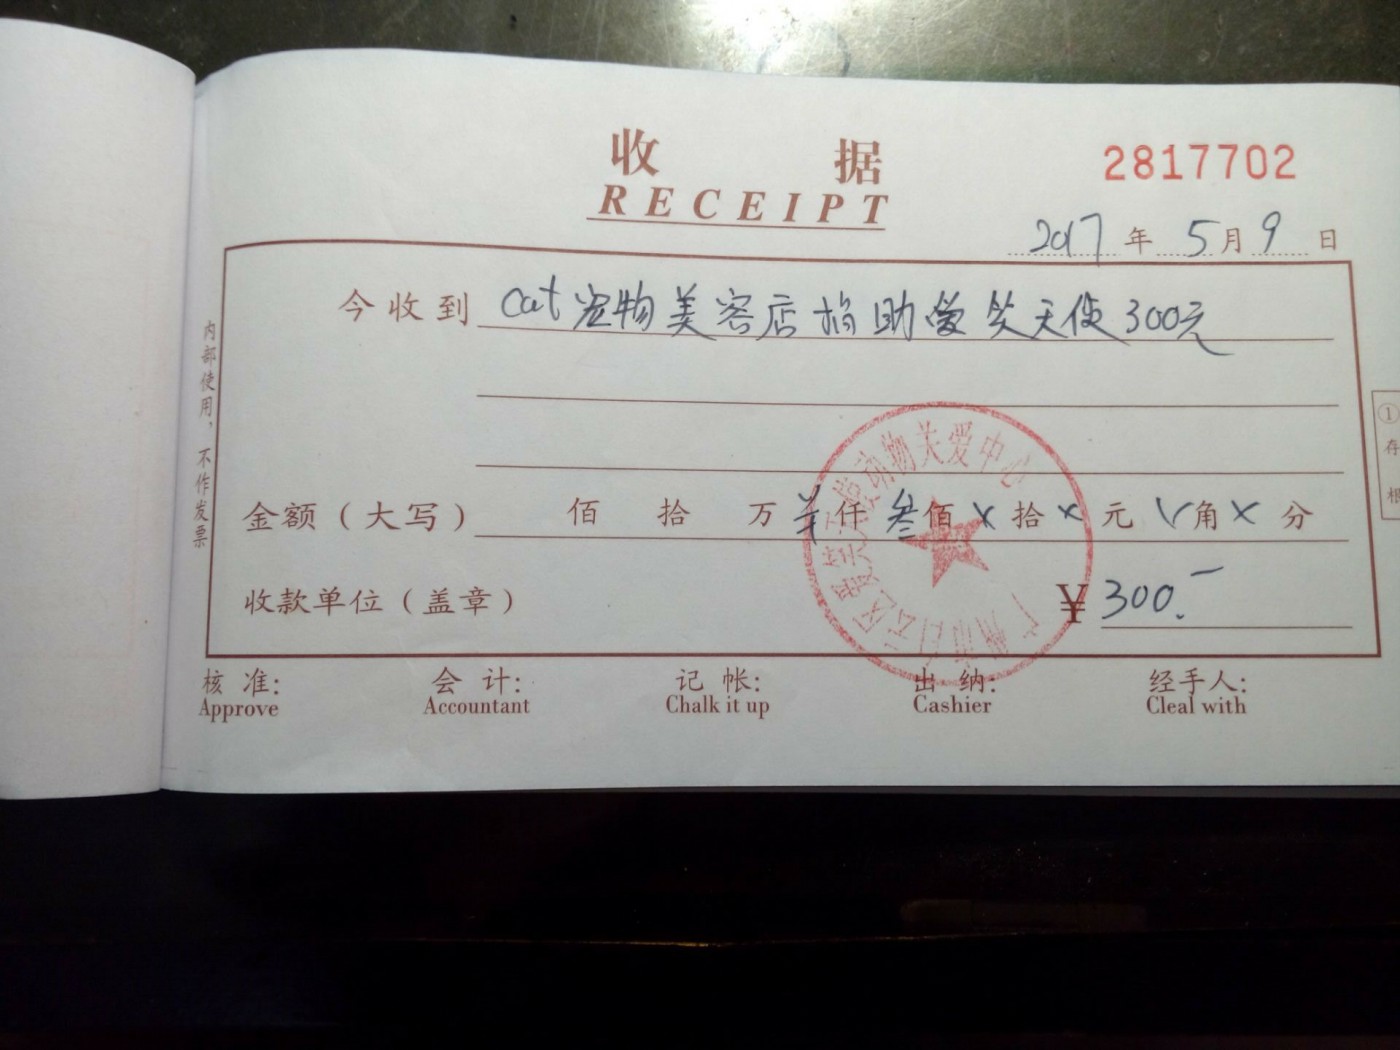 收 据
RECEIPT
2817702
2017 年 5 月 9 日
今收到 Cat宠物美容店捐助爱笑天使300元
金额（大写） 佰 拾 万 羊 仟 叁 佰 x 拾 x 元 \ 角 x 分
收款单位（盖章） ¥ 300.-
广州市白云区爱笑天使动物关爱中心
核 准: 会 计: 记 帐: 出 纳: 经手人:
Approve Accountant Chalk it up Cashier Cleal with
内部使用，不作发票
① 存 根